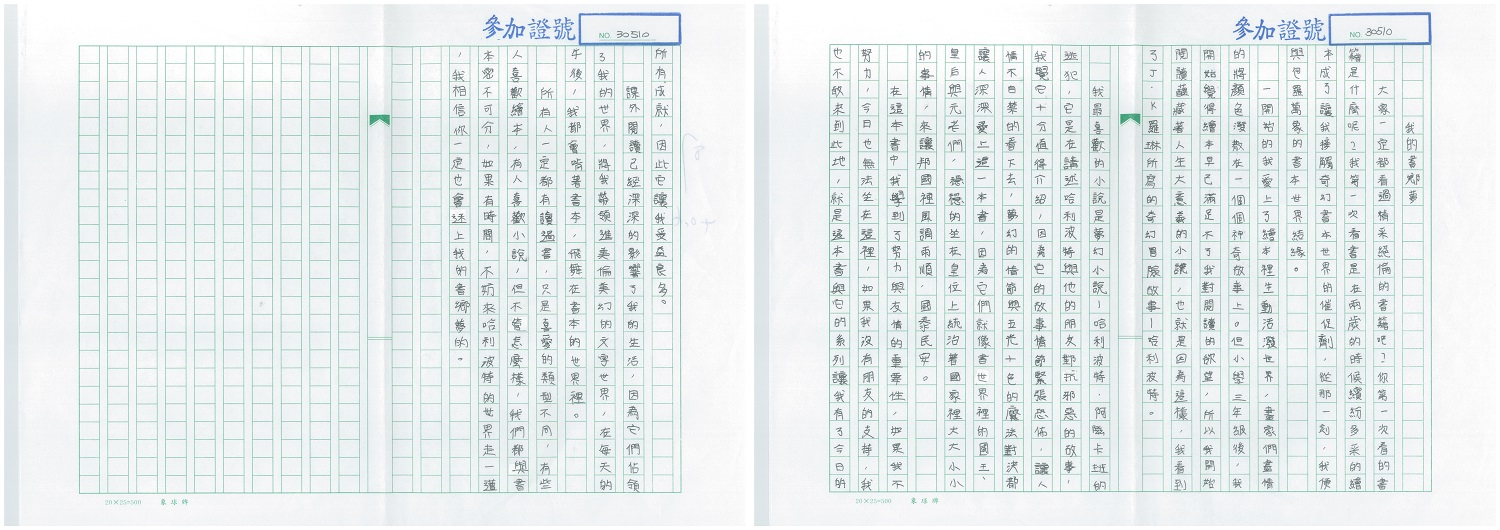 參加證號
NO. 30510
我的書鄉夢
大家一定都看過精采絕倫的書籍吧？你第一次看的書
籍是什麼呢？我第一次看書是在兩歲的時候繽紛多采的繪
本成了讓我接觸奇幻書本世界的催促劑，從那一刻，我便
與包羅萬象的書本世界結緣。
一開始的我愛上了繪本裡生動活潑世界，畫家們盡情
的將顏色潑散在一個個神奇故事上。但小學三年級後，我
開始覺得繪本早已滿足不了我對閱讀的欲望，所以我開始
閱讀蘊藏著人生大意義的小說，也就是因為這樣，我看到
了J．K羅琳所寫的奇幻冒險故事—哈利波特。
我最喜歡的小說是夢幻小說—哈利波特．阿茲卡班的
逃犯，它是在講述哈利波特與他的朋友對抗邪惡的故事，
我覺它十分值得介紹，因為它的故事情節緊張恐怖，讓人
情不自禁的看下去，夢幻的情節與五光十色的魔法對決都
讓人深深愛上這一本書，因為它們就像書世界裡的國王、
皇后與元老們，穩穩的坐在皇位上統治著國家裡大大小小
的事情，來讓邦國裡風調雨順，國泰民安。
在這本書中我學到了努力與友情的重要性，如果我不
努力，今日也無法坐在這裡，如果我沒有朋友的支持，我
也不敢來到此地，就是這本書與它的系列讓我有了今日的
參加證號
NO. 30510
所有成就，因此它讓我受益良多。
課外閱讀已經深深的影響了我的生活，因為它們佔領
了我的世界，將我帶領進美倫美幻的文字世界，在每天的
午後，我都會啃著書本，飛舞在書本的世界裡。
所有人一定都有讀過書，只是喜愛的類型不同，有些
人喜歡繪本，有人喜歡小說，但不管怎麼樣，我們都與書
本密不可分，如果有時間，不妨來哈利波特的世界走一遭
，我相信你一定也會迷上我的書鄉夢的。
20×25=500
象球牌
20×25=500
象球牌